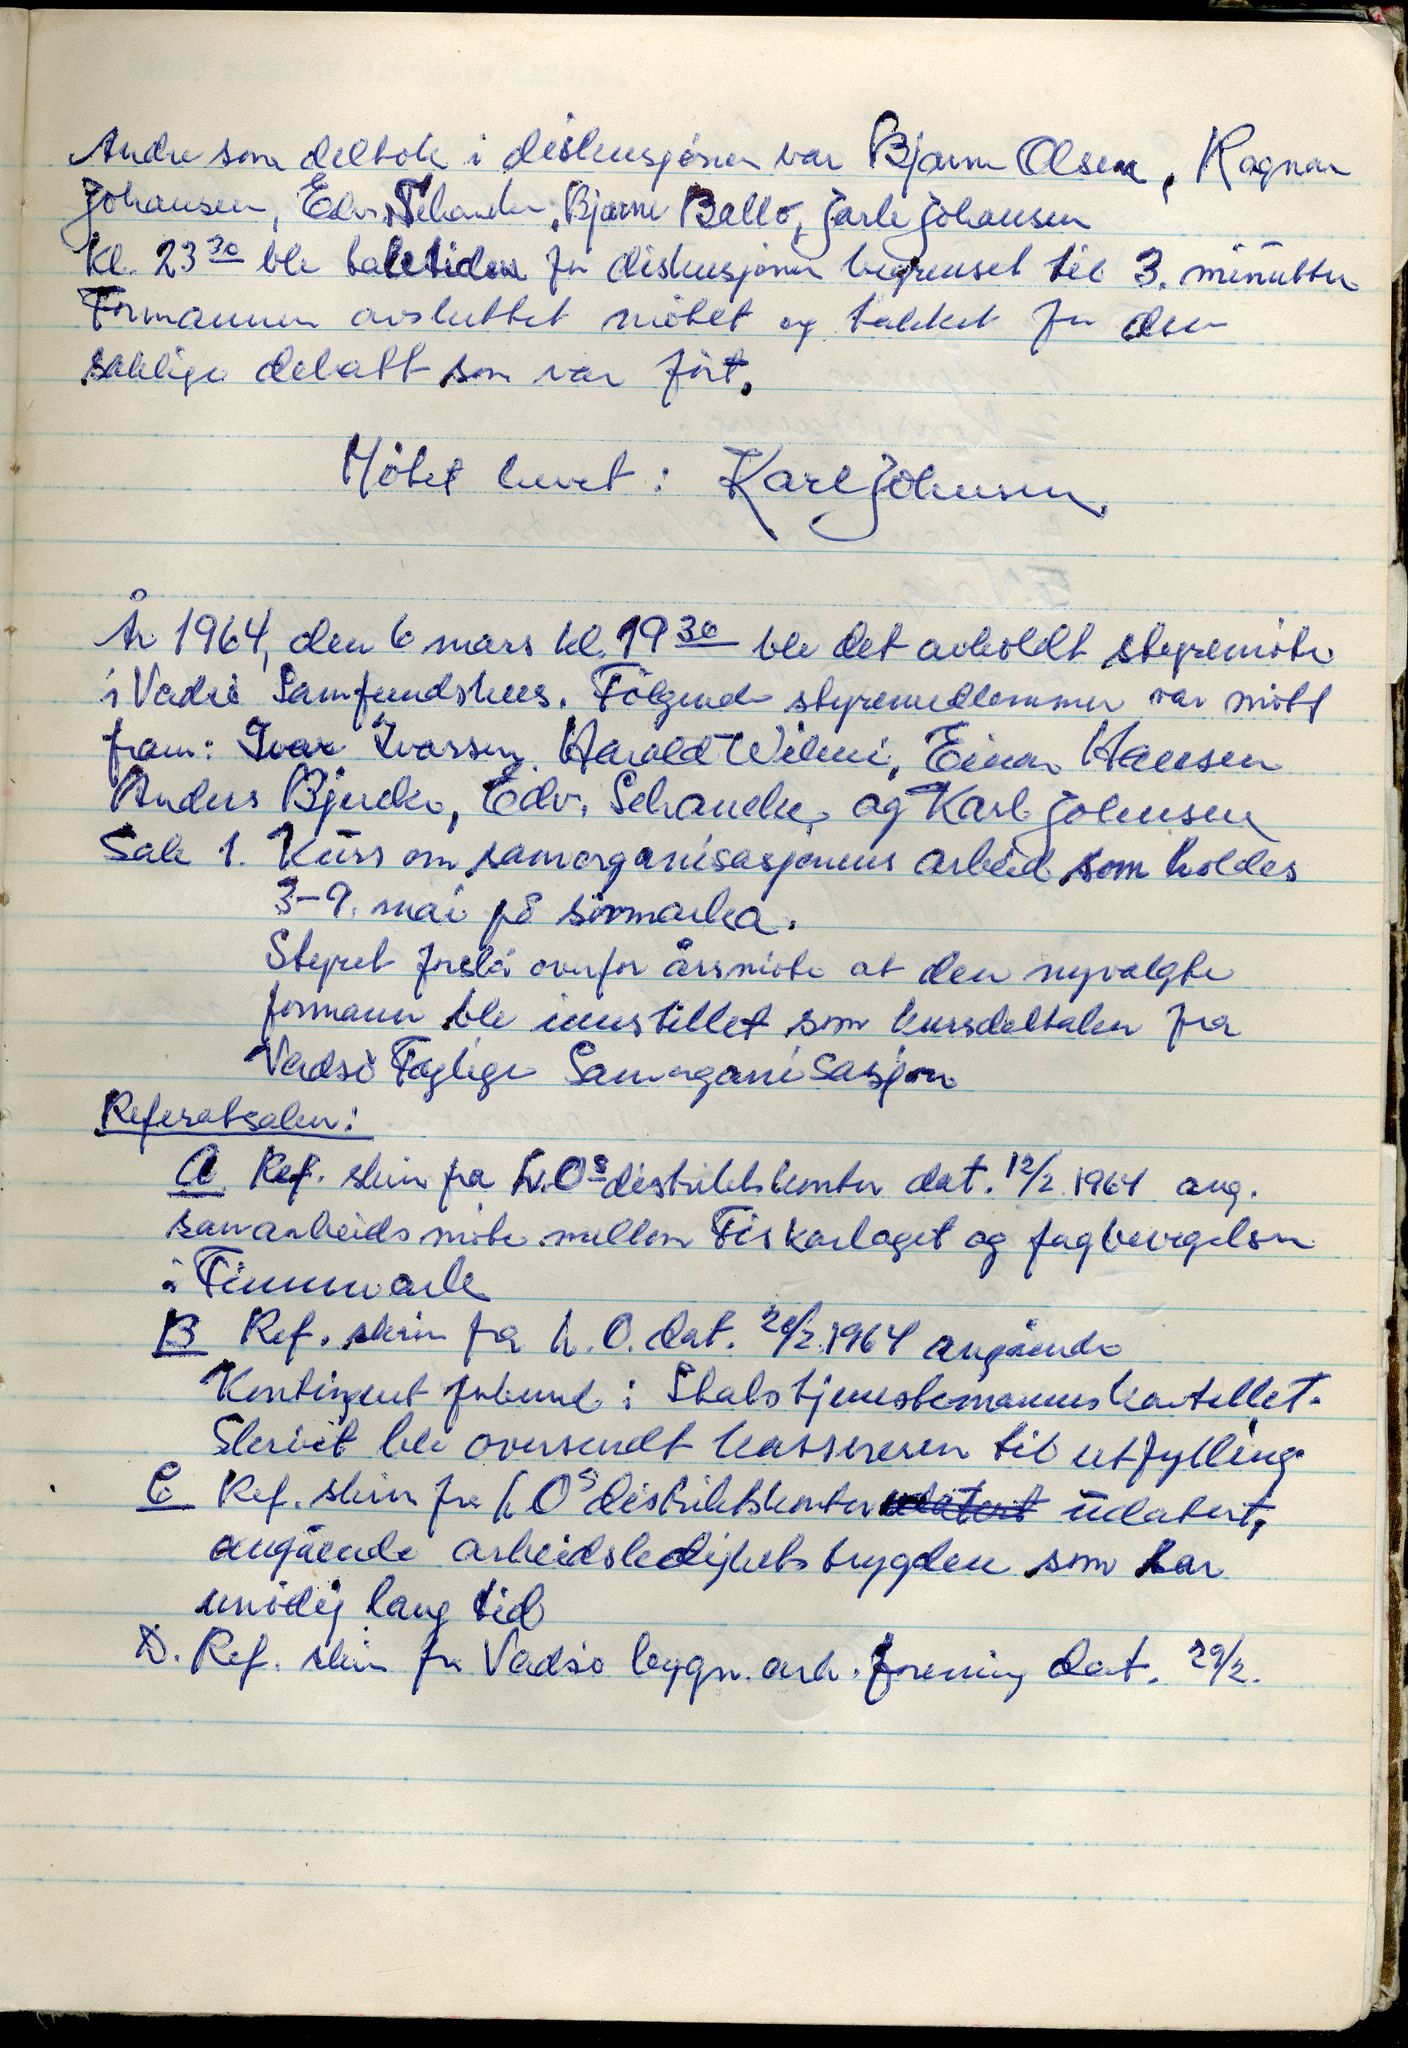 Andre som deltok i diskusjonen var Bjarne Olsen, Ragnar
Johansen, Edv. Schancke, Bjarne Ballo, Jarle Johansen
Kl. 23 30 ble taletiden for diskusjonen begrenset til 3. minutter
Formannen avsluttet mötet og takket for den
saklige debatt som var fört.
Mötet hevet: Karl Johnsen
År 1964, den 6 mars kl. 19 30 ble det avholdt styremöte
i Vadsö Samfundshus. Fölgende styremedlemmer var mött
fram: Ivar Ivarsen, Harald Wilmi, Einar Hansen
Anders Bjerke, Edv. Schancke, og Karl Johnsen
Sak 1. Kurs om samorganisasjonens arbeid som holdes
3-9. mai på sörmarka.
Styret forslå overfor årsmöte at den nyvalgte
formann ble innstillet som kursdeltaker fra
Vadsö Faglige Samorganisasjon
Referatsaker:
A. Ref. skriv fra L.Os distriktskontor dat. 12/2 1964 ang.
samarbeidsmöte mellom Fiskarlaget og fagbevegelsen
i Finnmark
B Ref. skriv fra L.O. dat. 20/2.1964 angående
Kontingent forbund i Statstjenestemannskartellet.
Skrivet ble oversendt kassereren til utfylling
C Ref. skriv fra L.Os distriktskontor udatert udatert,
angående arbeidsledighetstrygden som tar
unödig lang tid
D. Ref. skriv fra Vadsö bygn. arb. forening dat. 29/2.